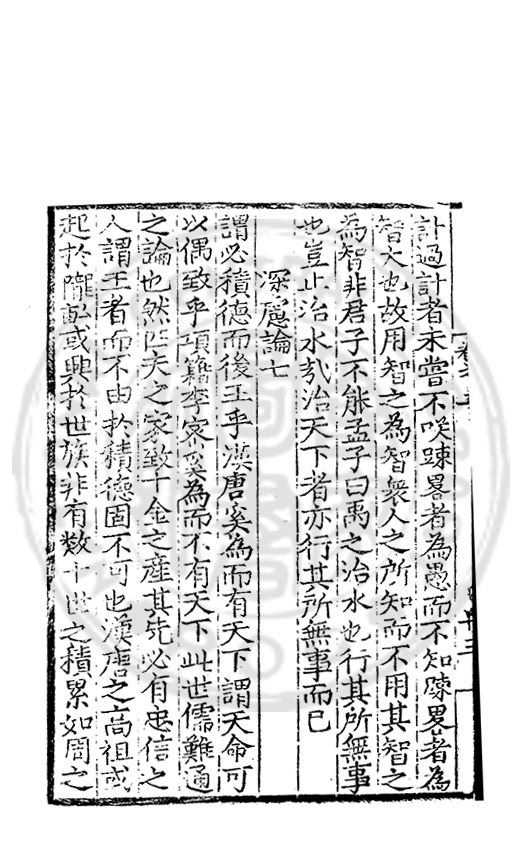 計過計者未嘗不咲踈畧者為愚而不知踈畧者為
智大也故用智之為智衆人之所知而不用其智之
為智非君子不能孟子曰禹之治水也行其所無事
也豈止治水㢤治天下者亦行其所無事而已
深慮論七
謂必積德而後王乎漢唐奚為而有天下謂天命可
以偶致乎項籍李宻奚為而不有天下此世儒難通
之論也然匹夫之家致千金之産其先必有忠信之
人謂王者而不由於積德固不可也漢唐之高祖或
起於隴畝或興於世族非有数十世之積累如周之